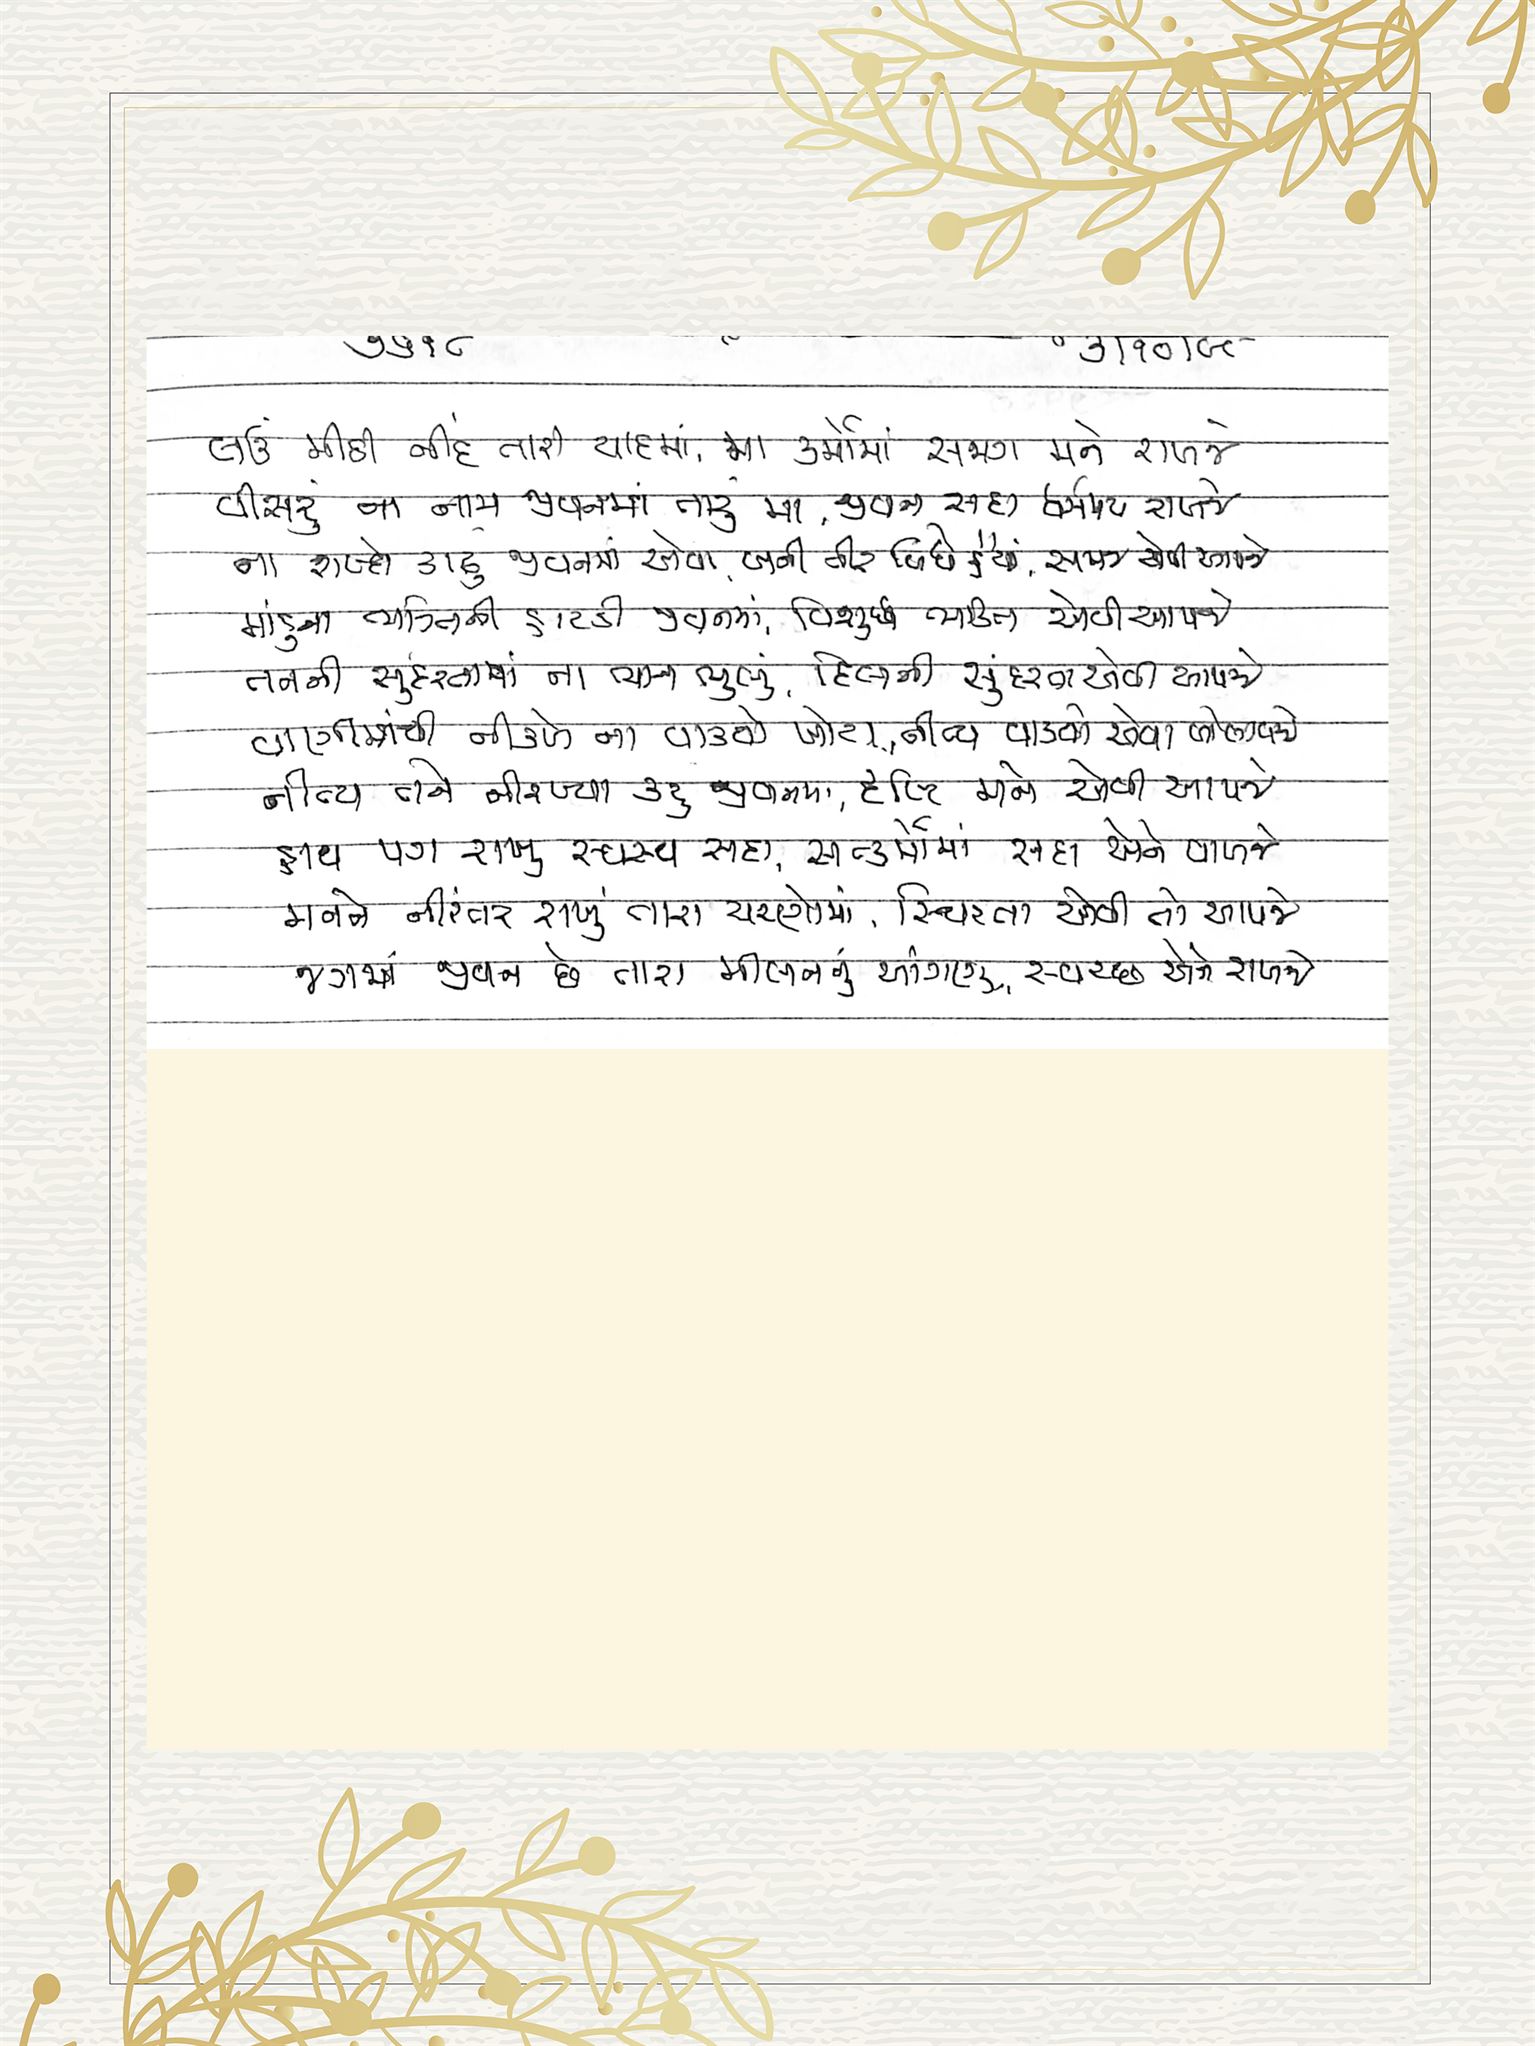 ૫૫૧૮
લઉં મીઠી નીંદ તારી યાદમાં, મા કર્મોમાં સજાગ મને રાખજે
વીસરું ના નામ જીવનમાં તારું મા, જીવન સદા રાખજે
ના રાખ્યો જીવનમાં એવા, બની સમજ એવી આપજે
માંદુના જીવનમાં, વિશુદ્ધ ભક્તિ એવી આપજે
તનની સુંદરતામાં ના ભાન ભુલું, દિલની સુંદરતા એવી આપજે
વાણીમાંથી નીકળે ના વાક્યો ખોટા, નીત્ય વાક્યો એવા બોલાવજે
નીત્ય તને નીરખ્યા કરું જીવનમાં, દૃષ્ટિ મને એવી આપજે
હાથ પગ રાખું સ્વસ્થ સદા, સત્કર્મોમાં સદા એને વાળજે
મનને નીરંતર રાખું તારા ચરણોમાં, સ્થિરતા એવી તો આપજે
જગમાં જીવન છે તારા મીલનનું આંગણું, સ્વચ્છ એને રાખજે